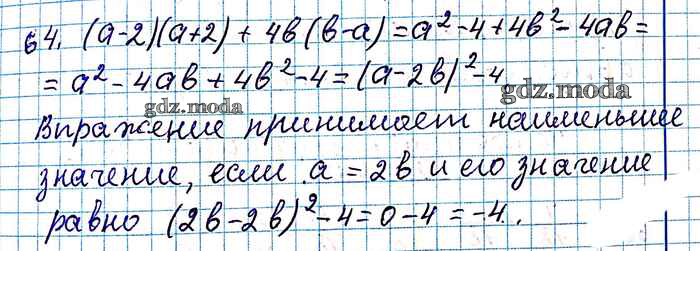 64. (а-2)(а+2) + 4в(в-а) = а² - 4 + 4в² - 4ав =
= а² - 4ав + 4в² - 4 = (а-2в)² - 4
gdz.moda
gdz.moda
Выражение принимает наименьшее
значение, если а = 2в и его значение
равно (2в-2в)² - 4 = 0 - 4 = -4.